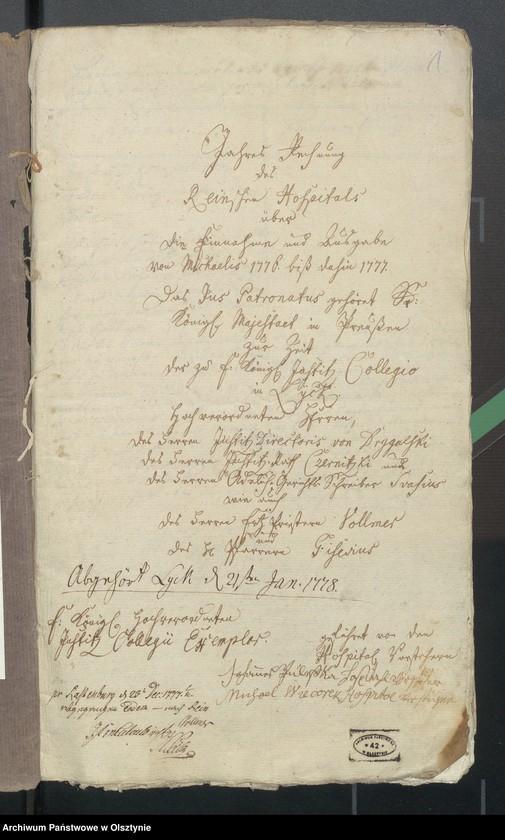 1
Jahres Rechnung
des
Reinschen Hospitals
über
die Einnahme und Ausgabe
von Michaelis 1776. biß dahin 1777.
Das Jus Patronatus gehöret Sr:
Königl. Majestaet in Preußen
zur Zeit
der zu Königl. Justitz Collegio
in Lÿck.
Hochverordneten Herren,
des Herren Justitz Directoris von Drygalski
des Herren Justitz-Rath Czernitzki und
des Herren Gerichts Schreiber
wie auch
des Herren Ertz Priestern Vollmer
und
des H Pfarrern Gisevius
Abgehört Lyck d 21ten Jan. 1778.
Königl Hochverordneten
Justitz Collegii Exemplar.
geführet von den
Hospital Vorstehern
Johannes Hospital Vorsteher
Michael Wieczorek Hospital Vorsteher
pr Rastenburg d Dec. 1777.
ARCHIWUM PAŃSTWOWE
* 42 *
w OLSZTYNIE
Archiwum Państwowe w Olsztynie